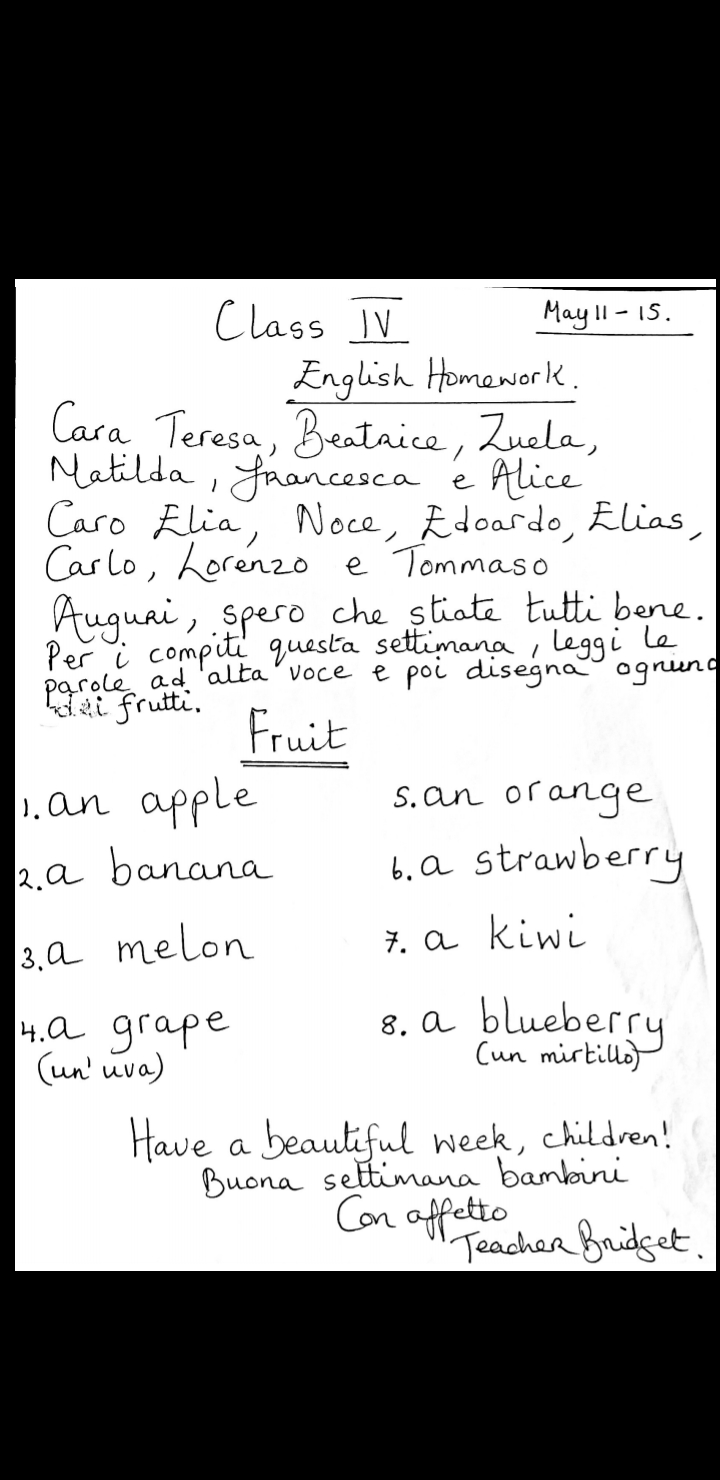 Class IV
May 11 - 15.
English Homework.
Cara Teresa, Beatrice, Zuela,
Matilda, Francesca e Alice
Caro Elia, Noce, Edoardo, Elias,
Carlo, Lorenzo e Tommaso
Auguri, spero che stiate tutti bene.
Per i compiti questa settimana, leggi le
parole ad alta voce e poi disegna ognuno
dei frutti.
Fruit
1. an apple
5. an orange
2. a banana
6. a strawberry
3. a melon
7. a kiwi
4. a grape
8. a blueberry
(un' uva)
(un mirtillo)
Have a beautiful week, children!
Buona settimana bambini
Con affetto
Teacher Bridget.